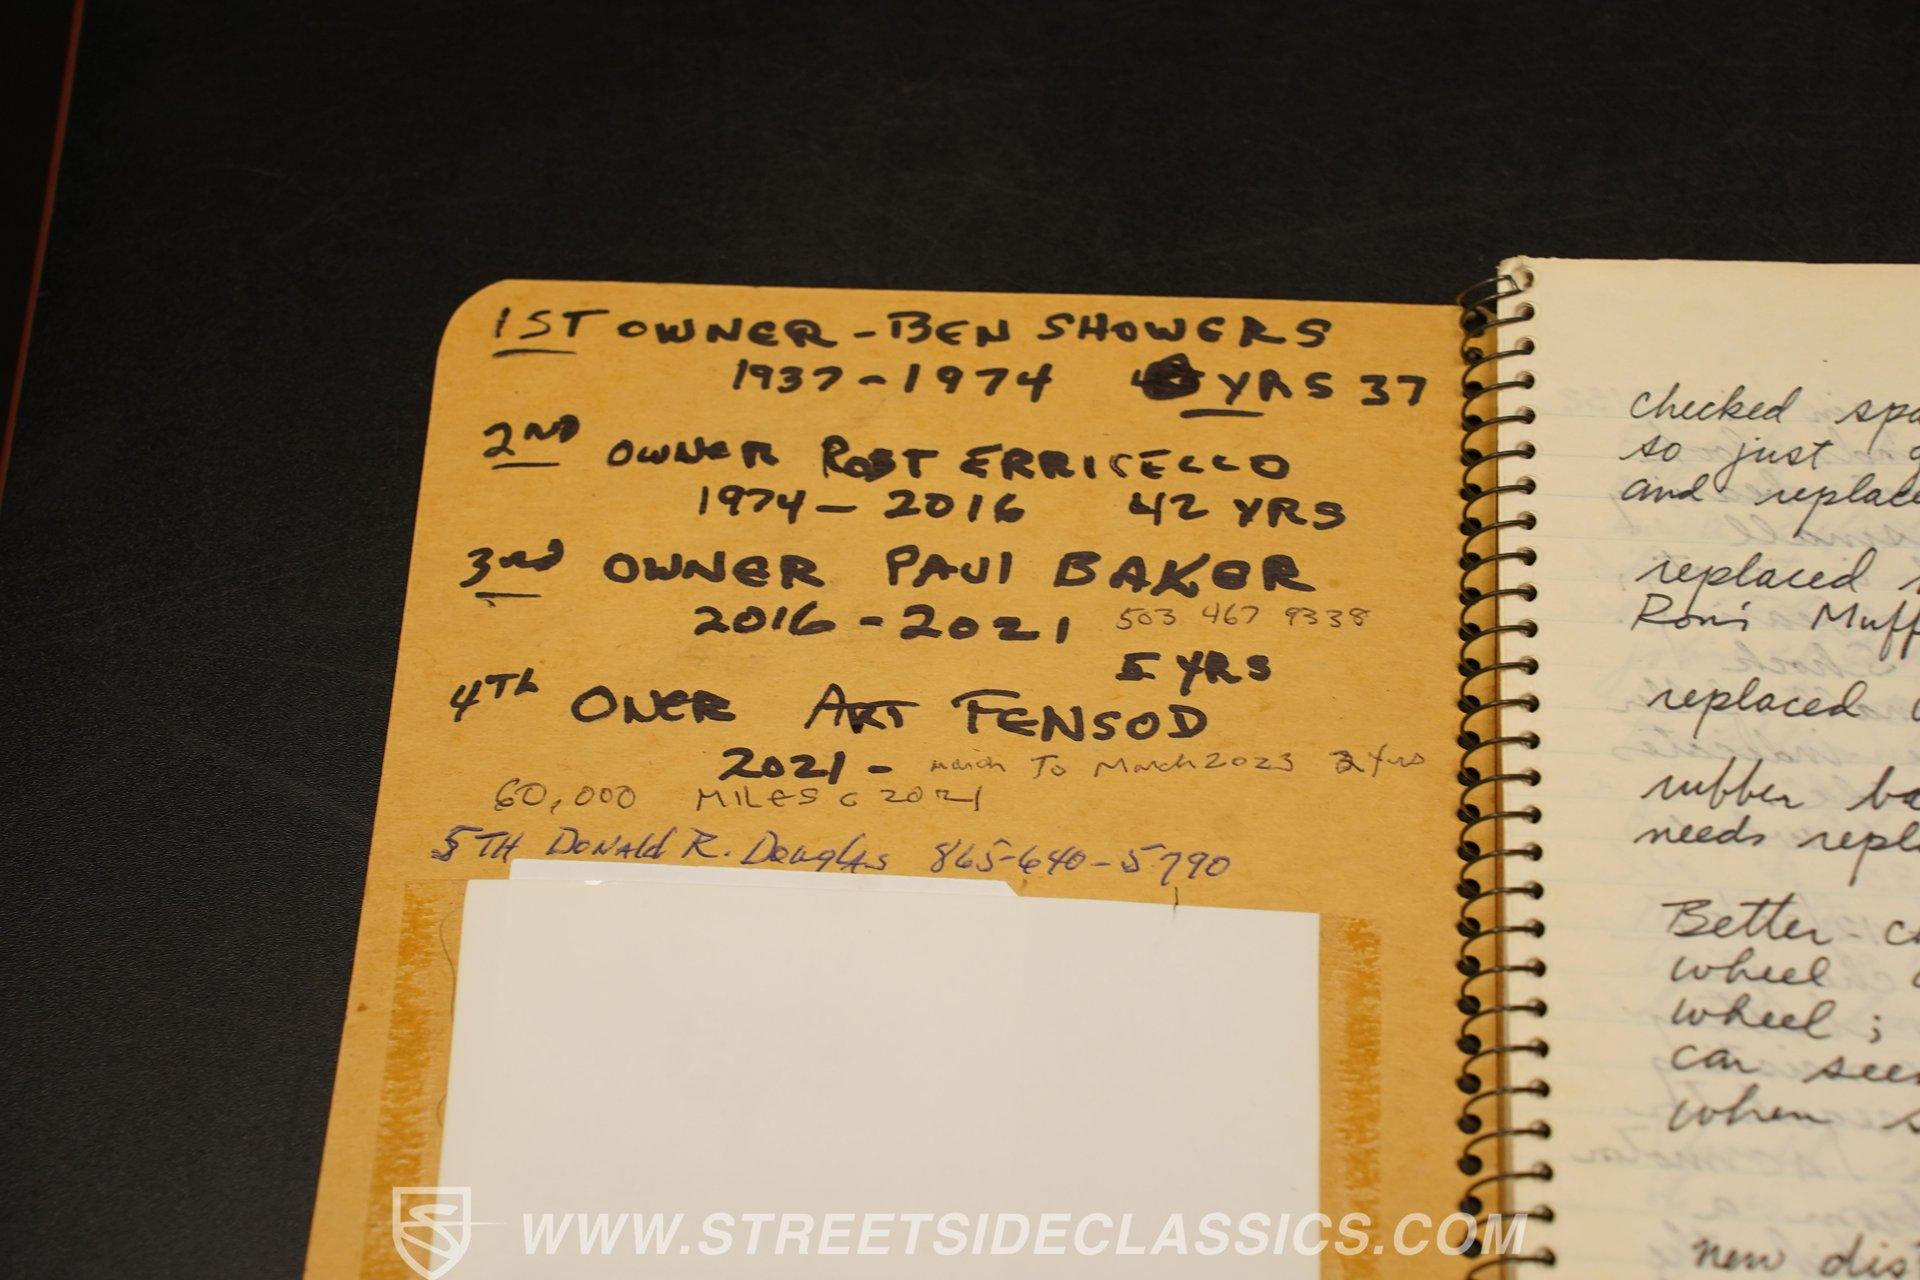 1ST OWNER - BEN SHOWERS
1937 - 1974 YRS 37
2ND OWNER ROBT ERRICELLO
1974 - 2016 42 YRS
3rd OWNER PAUl BAKER
2016 - 2021 503 467 9338
5 YRS
4TH ONER ART FENSOD
2021 - march To March 2023 2 Yrs
60,000 MILES 2021
5TH DONAld R. Douglas 865-640-5790
checked
so just
and
replaced
Ron's Muff
replaced
rubber
needs repl
Better
wheel
wheel ;
car seem
when s
new dis
WWW.STREETSIDECLASSICS.COM